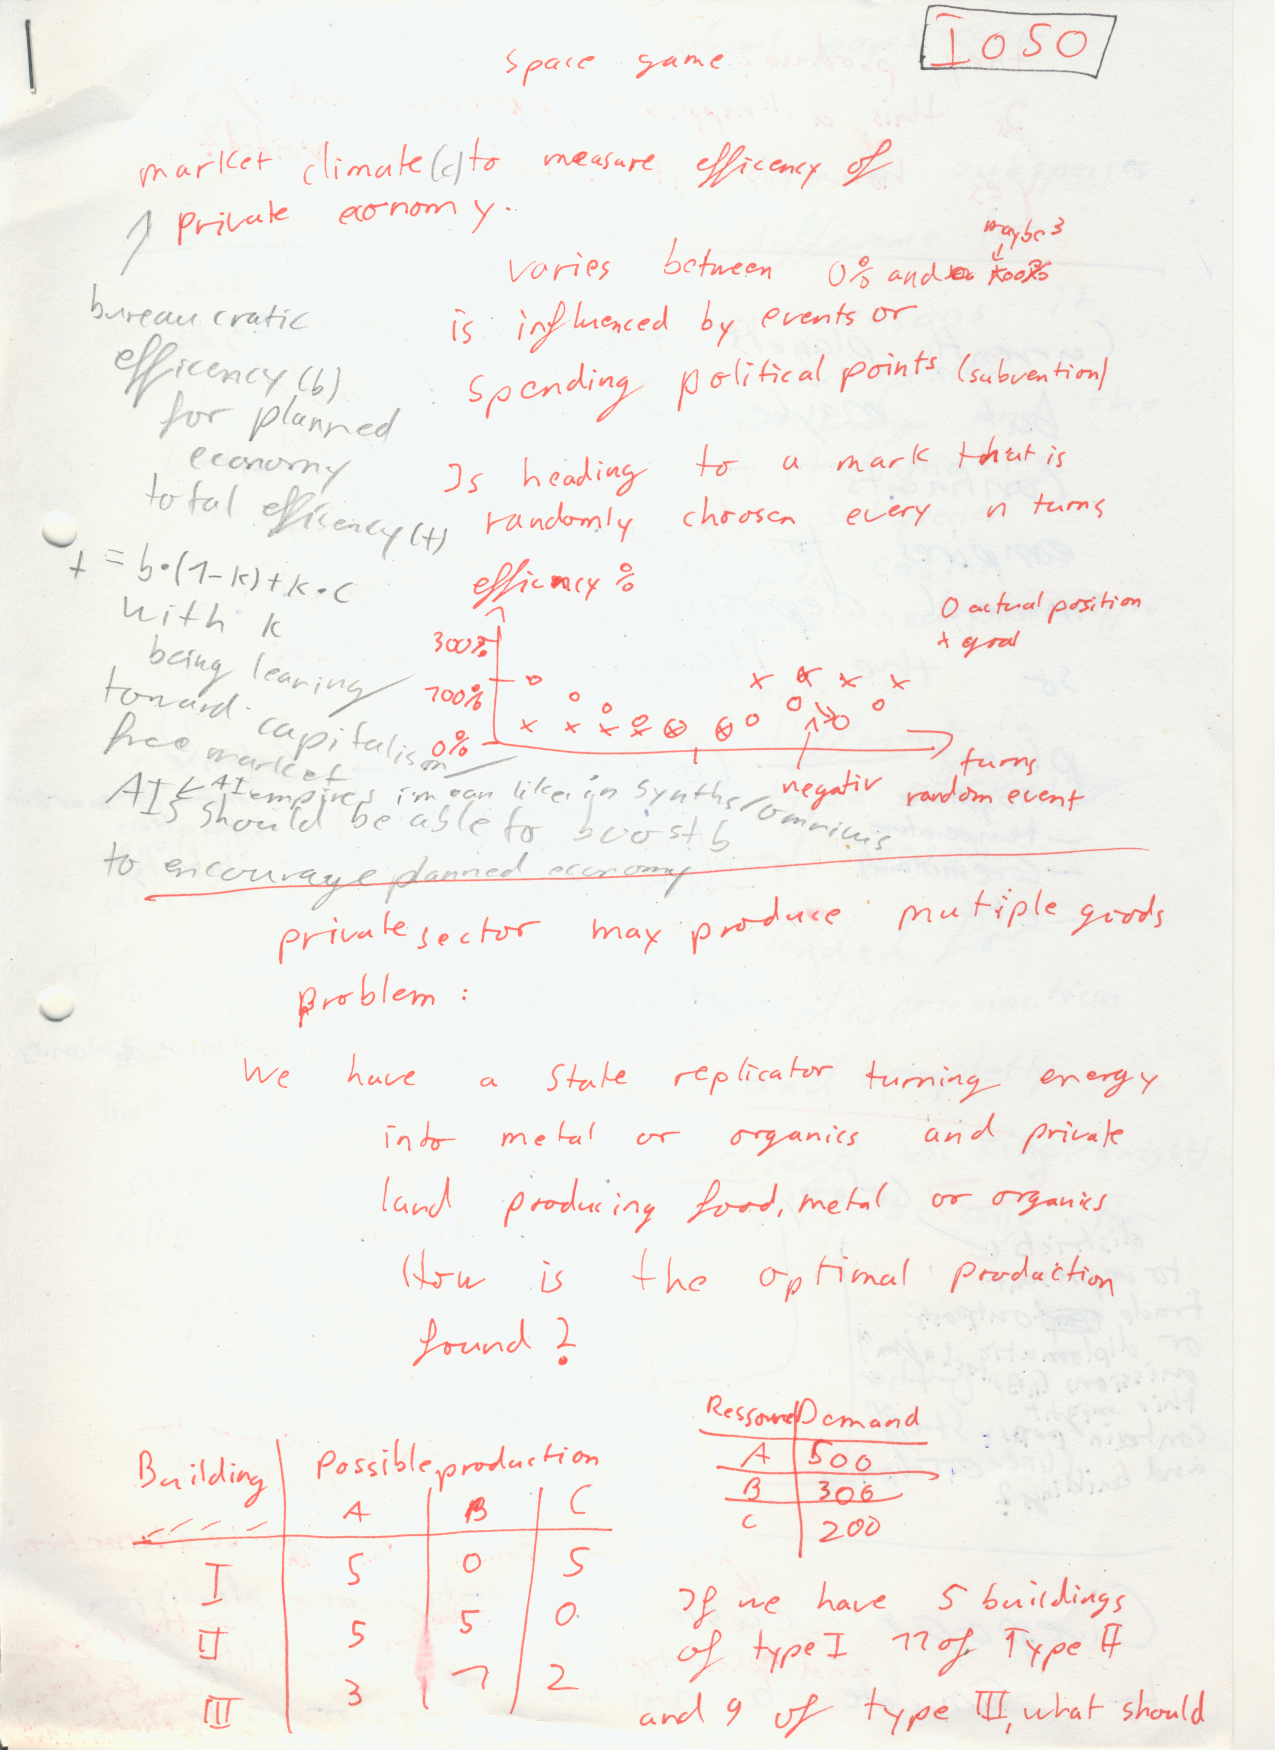 I050
space game
market climate (c) to measure efficency of
private economy.
maybe 3
varies between 0% and 100%
is influenced by events or
spending political points (subvention)
Is heading to a mark that is
randomly choosen every n turns
bureaucratic
efficency (b)
for planned
economy
total efficency (t)
t = b·(1-k)+k·c
with k
being leaning
toward capitalism /
free market
AI empires i mean like in synths/omnius
AIs should be able to boost b
to encourage planned economy
efficency %
300%
100%
0%
O actual position
x goal
turns
negativ
random event
private sector may produce multiple goods
problem:
We have a state replicator turning energy
into metal or organics and private
land producing food, metal or organics
How is the optimal production
found?
Ressource Demand
A 500
B 300
C 200
Building Possible production
A B C
I 5 0 5
II 5 5 0
III 3 1 2
If we have 5 buildings
of type I 11 of Type II
and 9 of type III, what should